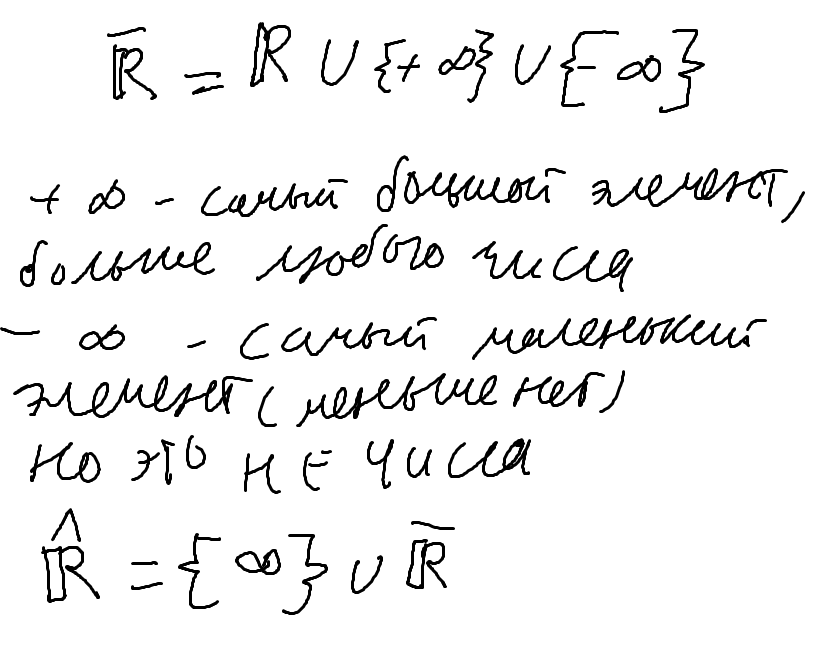 R̅ = ℝ ∪ {+ ∞} ∪ {- ∞}
+ ∞ - самый большой элемент,
больше любого числа
- ∞ - самый маленький
элемент (меньше нет)
но это НЕ числа
R̂ = {∞} ∪ R̅